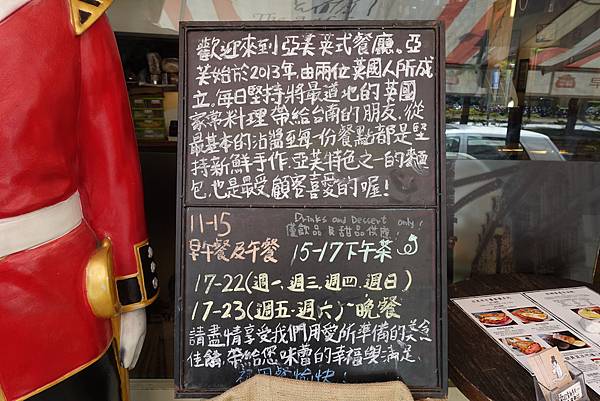 歡迎來到亞芙英式餐廳。亞
芙始於2013年由兩位英國人所成
立。每日堅持將最道地的英國
家常料理帶給台南的朋友，從
最基本的沾醬至每一份餐點都是堅
持新鮮手作，亞芙特色之一的麵
包，也是最受顧客喜愛的喔！
11-15
早午餐及午餐
Drinks and Dessert only!
僅飲品及甜品供應
15-17下午茶
17-22(週一、週三、週四、週日)
17-23(週五、週六)晚餐
請盡情享受我們用愛所準備的美食
佳餚，帶給您味蕾的幸福與滿足。